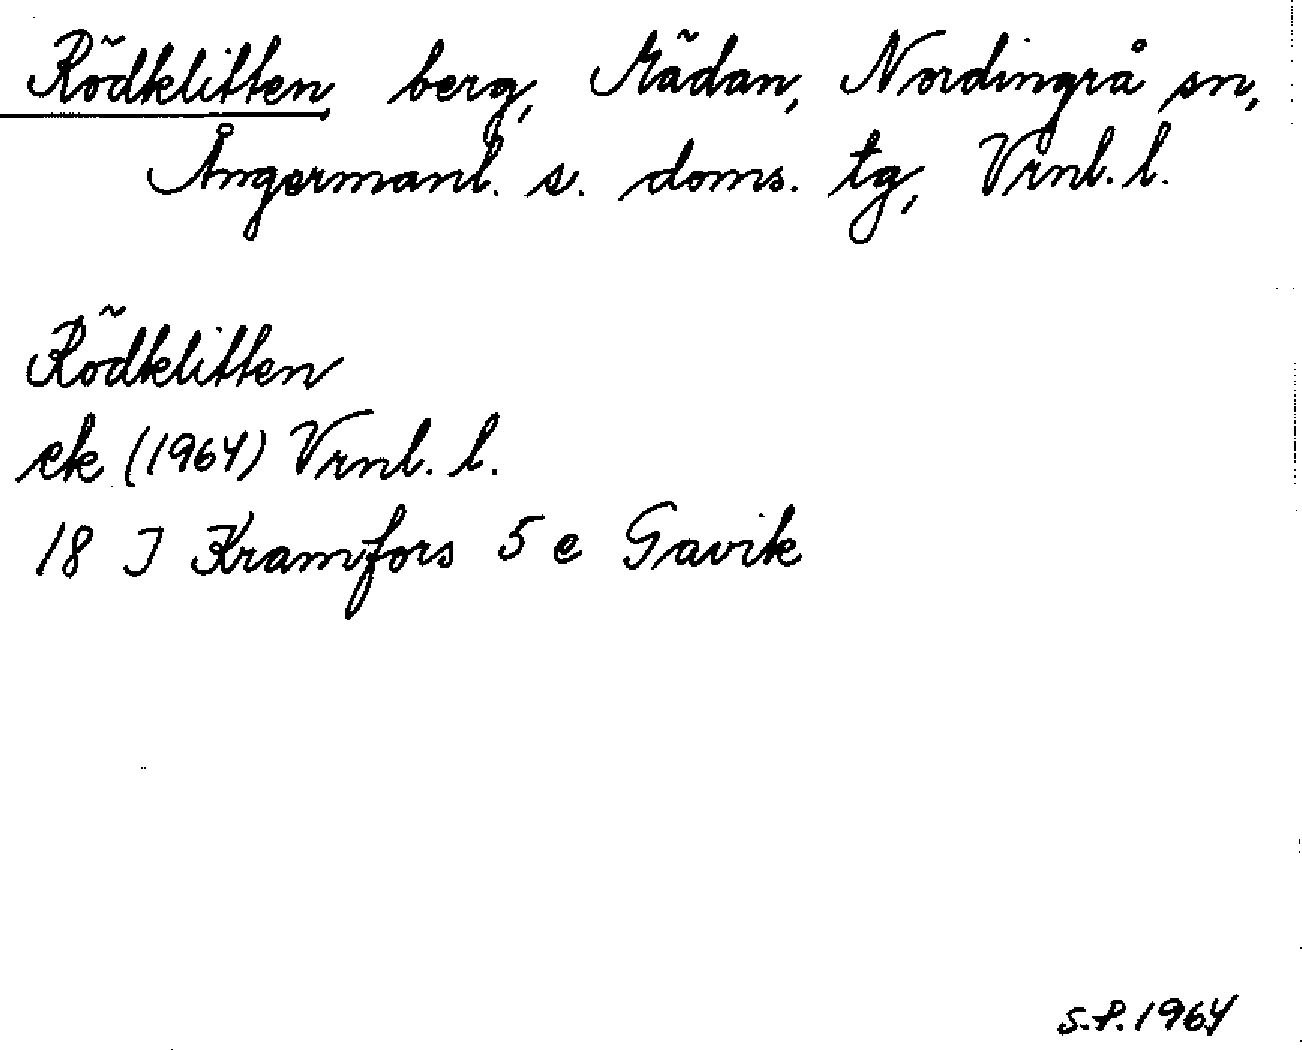 Rödklitten, berg, Mädan, Nordingrå sn,
Ångermanl. s. doms. tg, Vrnl. l.
Rödklitten
ek (1964) Vrnl. l.
18 J Kramfors 5 e Gavik
S.P. 1964